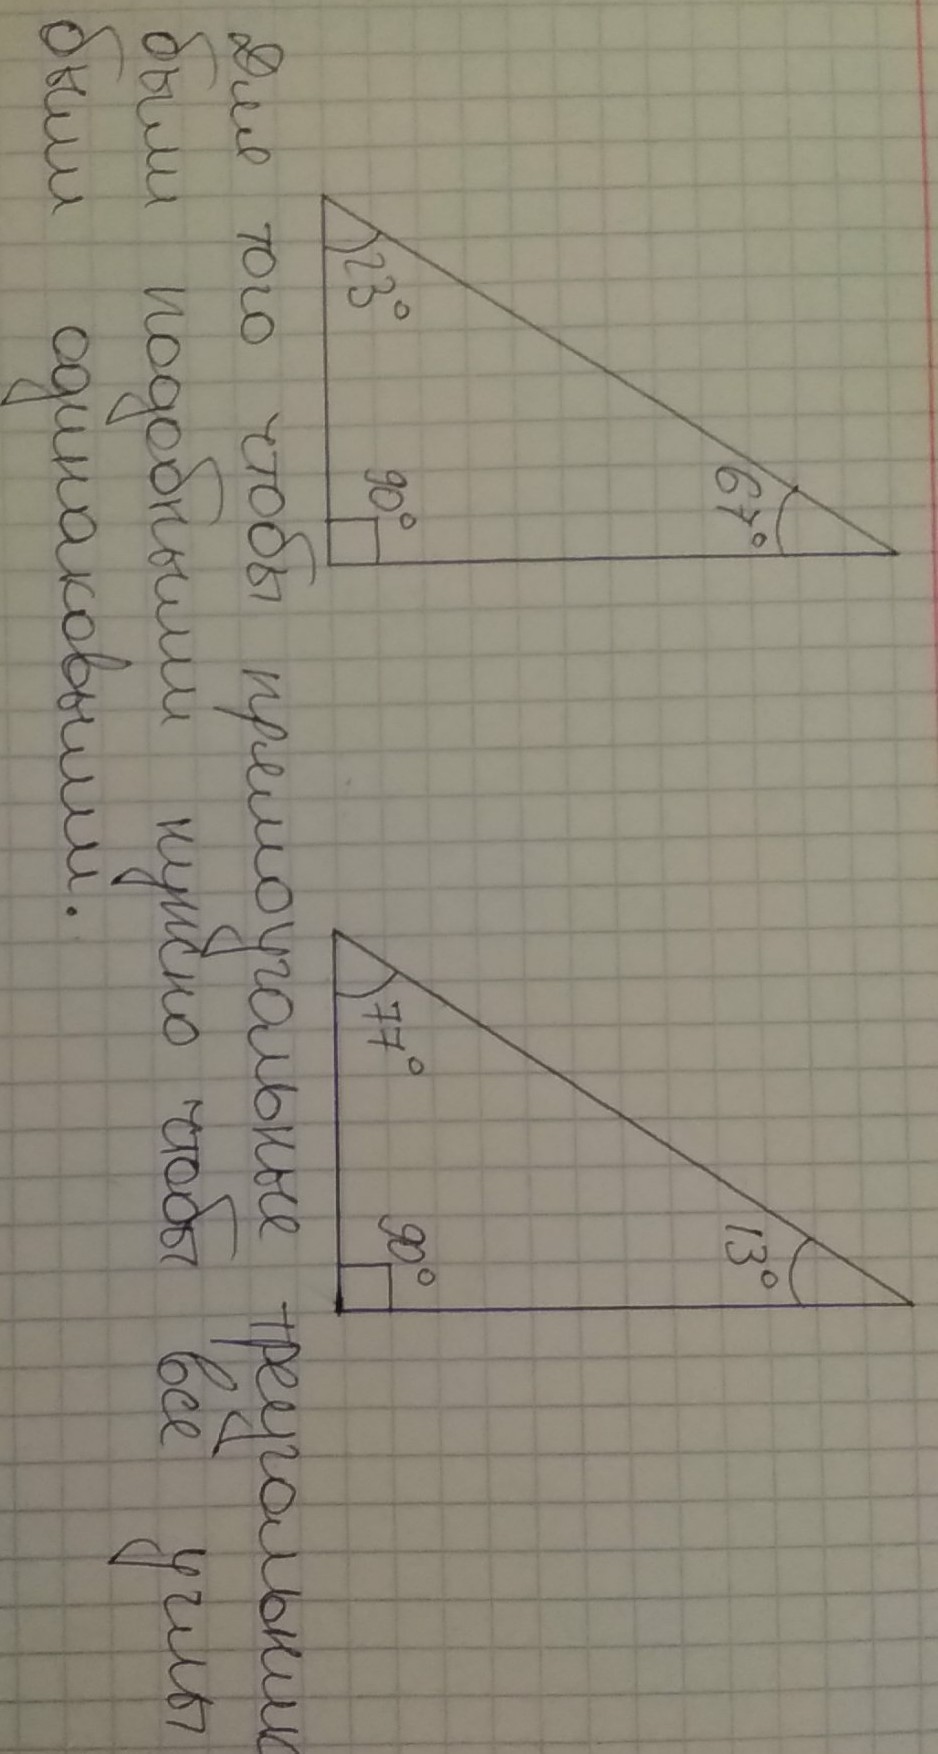 67°
13°
23°
90°
77°
90°
Для того чтобы прямоугольные треугольник
были подобными нужно чтобы все углы
были одинаковыми.